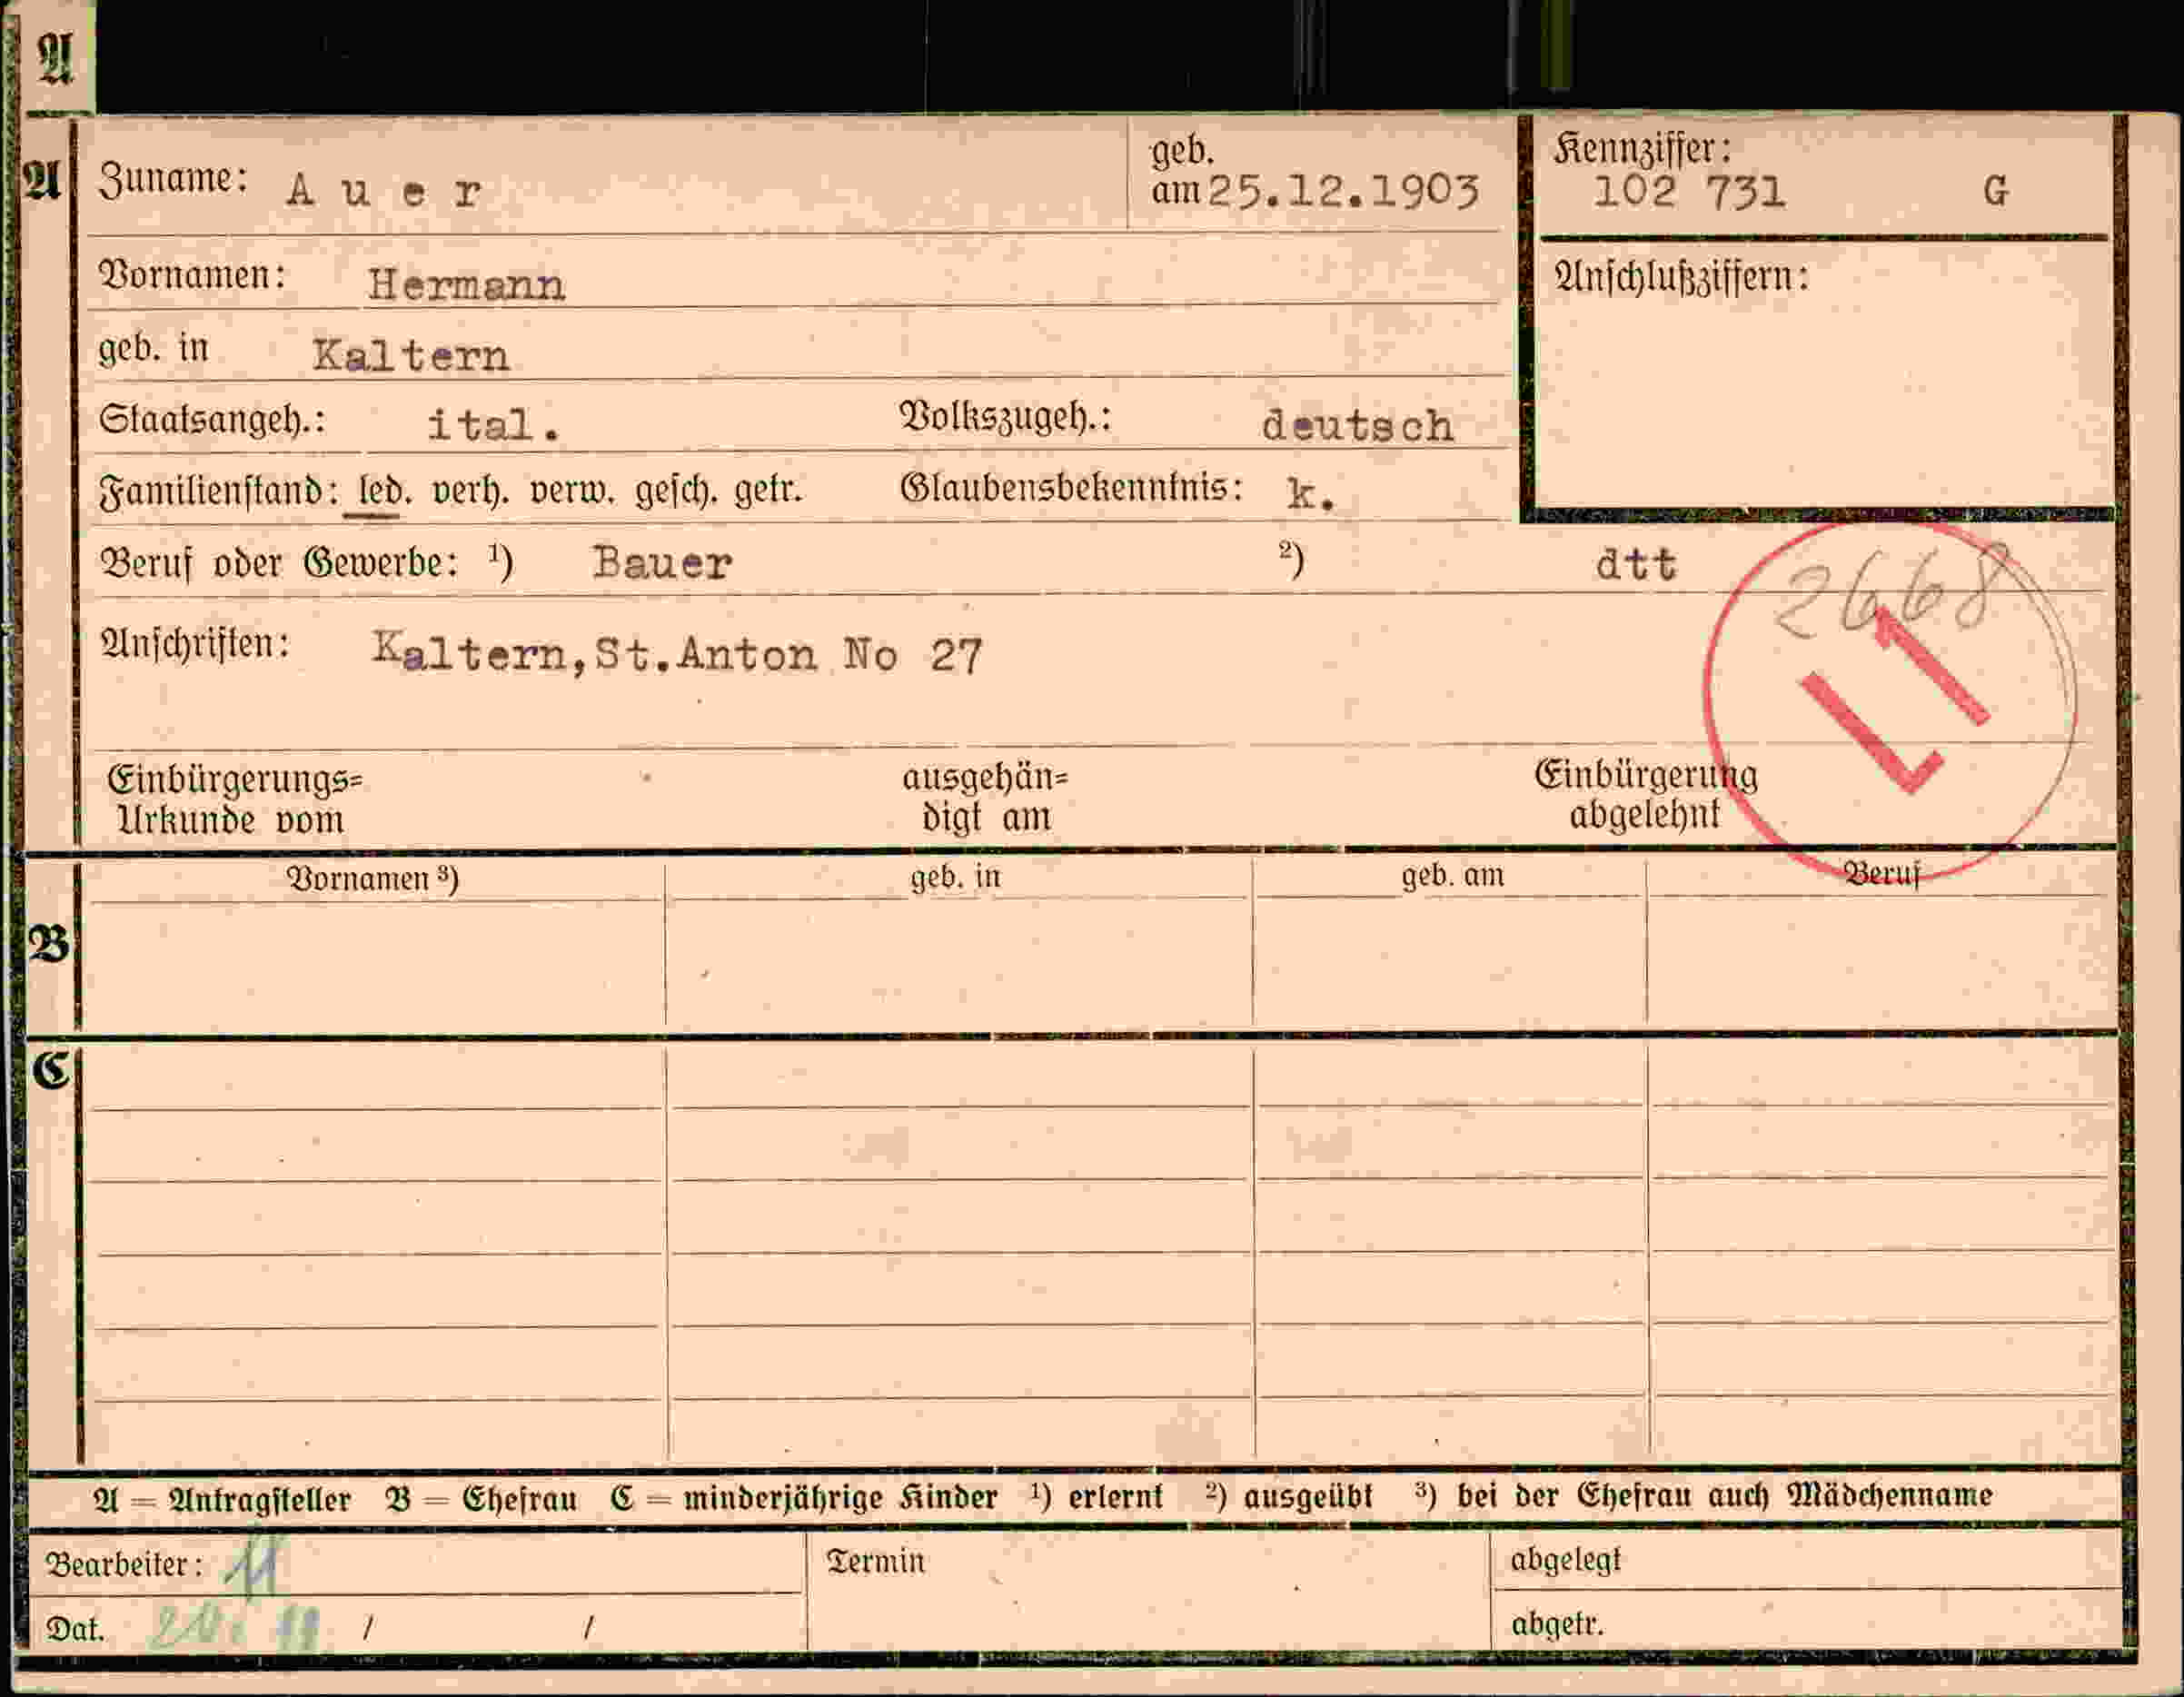 A
A
Zuname: Auer
geb. am 25.12.1903
Kennziffer:
102 731 G
Vornamen: Hermann
Anschlußziffern:
geb. in Kaltern
Staatsangeh.: ital. Volkszugeh.: deutsch
Familienstand: led. verh. verw. gesch. getr. Glaubensbekenntnis: k.
Beruf oder Gewerbe: ¹) Bauer ²) dtt
2668
Anschriften: Kaltern,St.Anton No 27
L1
Einbürgerungs= ausgehän= Einbürgerung
Urkunde vom digt am abgelehnt
Vornamen ³) geb. in geb. am Beruf
B
C
A = Antragsteller B = Ehefrau C = minderjährige Kinder ¹) erlernt ²) ausgeübt ³) bei der Ehefrau auch Mädchenname
Bearbeiter: Termin abgelegt
Dat. / / abgetr.